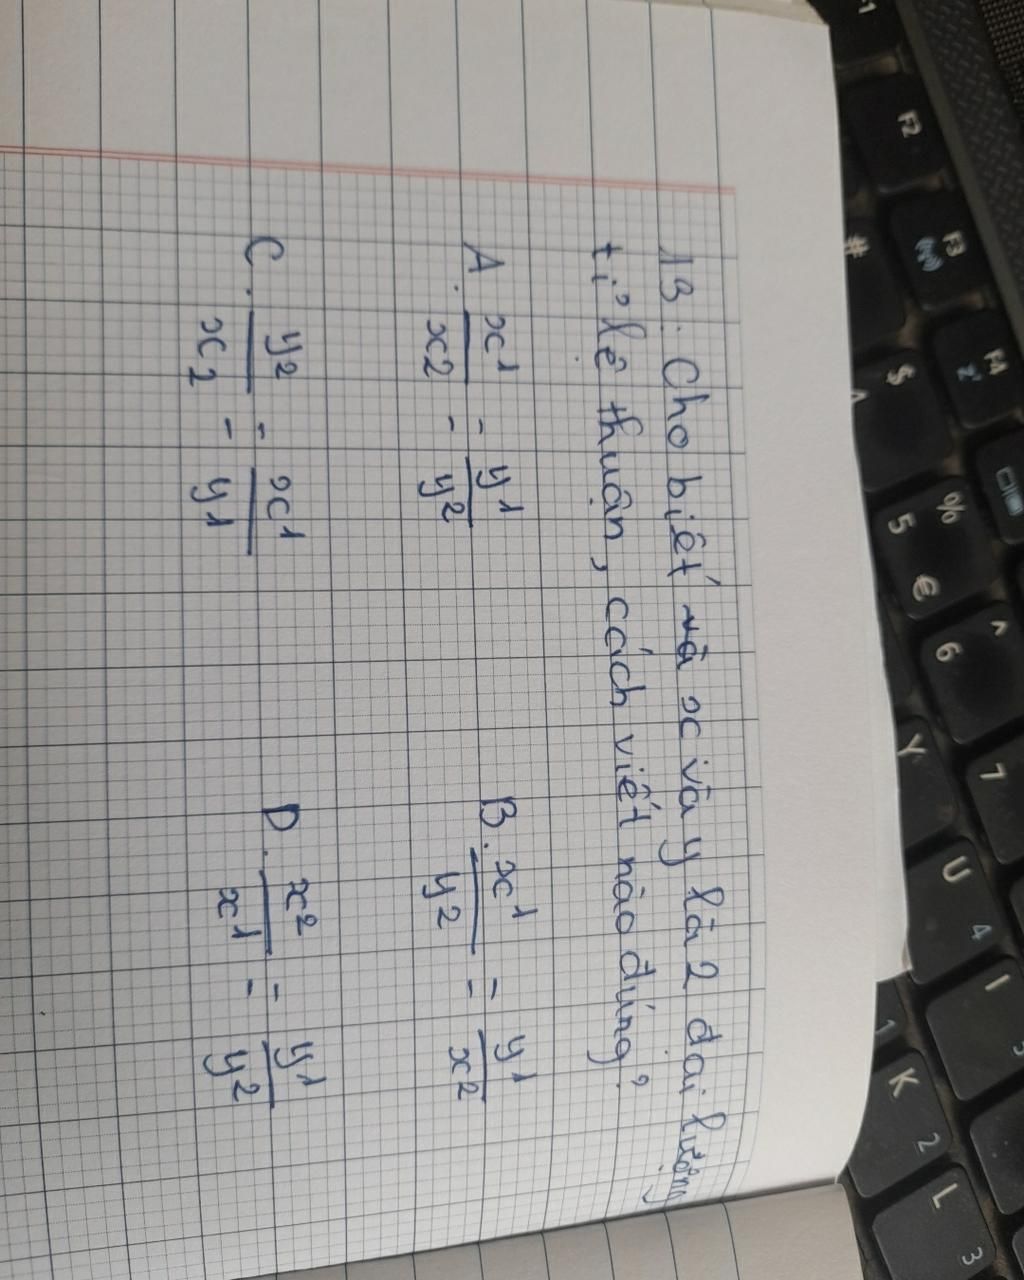 13. Cho biết và x và y là 2 đại lượng
tỉ lệ thuận, cách viết nào đúng?
A. x1/x2 = y1/y2 B. x1/y2 = y1/x2
C. y2/x2 = x1/y1 D. x2/x1 = y1/y2
F1
F2
F3
F4
#
$
%
5
€
^
6
7
Y
U
4
I
5
1
K
2
L
3